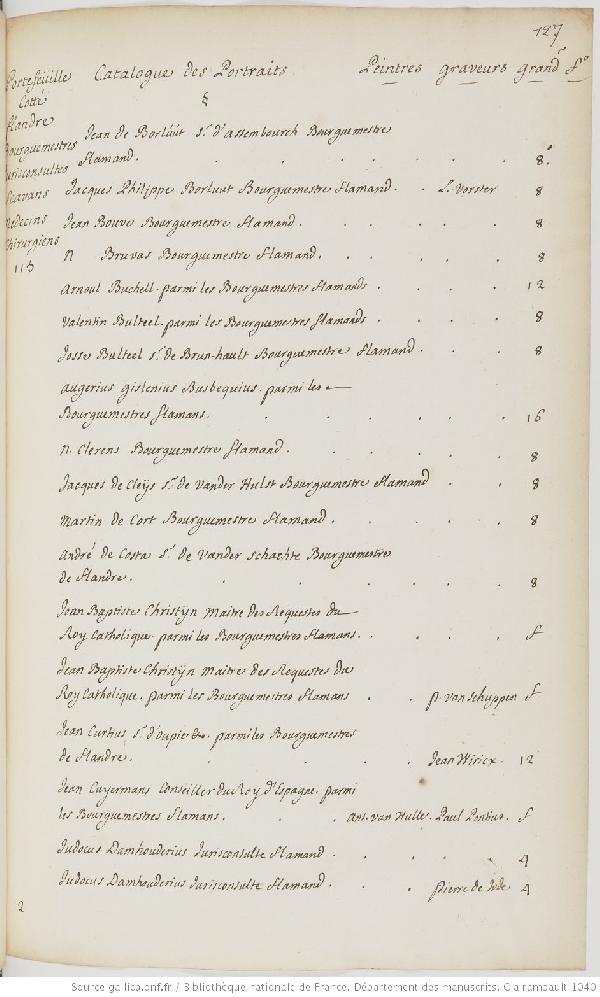 127
Portefeüille Catalogue des Portraits Peintres graveurs grandr fo
Cotté §
flandre
Bourguemestres Jean de Borlüüt sr. d'assembourch Bourguemestre
Jurisconsultes flamand. 8.
sçavans Jacques Philippe Borluut Bourguemestre flamand. L. Vorster 8
Medecins Jean Bouve Bourguemestre flamand. 8
Chirurgiens N Bruvas Bourguemestre flamand. 8
113
Arnoul Buchell. parmi les Bourguemestres flamands 12
Valentin Bulteel. parmi les Bourguemestres flamands 8
Josse Bulteel sr. de Brun-hault Bourguemestre flamand. 8
Augerius gislenius Busbequius. parmi les
Bourguemestres flamans. 16
N. Clerens Bourguemestre flamand. 8
Jacques de Cleÿs sr. de Vander Hulst Bourguemestre flamand 8
Martin de Cort Bourguemestre flamand. 8
André de Costa sr. de Vander schachte Bourguemestre
de flandre. 8
Jean Baptiste Christÿn Maitre des Requestes du
Roy Catholique. parmi les Bourguemestres flamans. f
Jean Baptiste Christÿn maitre des Requestes du
Roy Catholique. parmi les Bourguemestres flamans p. van schuppen f
Jean Curtius sr. d'oupie &c. parmi les Bourguemestres
de flandre. Jean Wiricx. 12
Jean Cuyermans Conseiller du Roy d'Espagne. parmi
les Bourguemestres flamans. Ant. van Hulle. Paul Pontius. f
Judocus Damhouderius Jurisconsulte flamand. 4
Judocus Damhouderius Jurisconsulte flamand. pierre de Jode 4
2
Source gallica.bnf.fr / Bibliothèque nationale de France. Département des manuscrits. Clairambault 1040